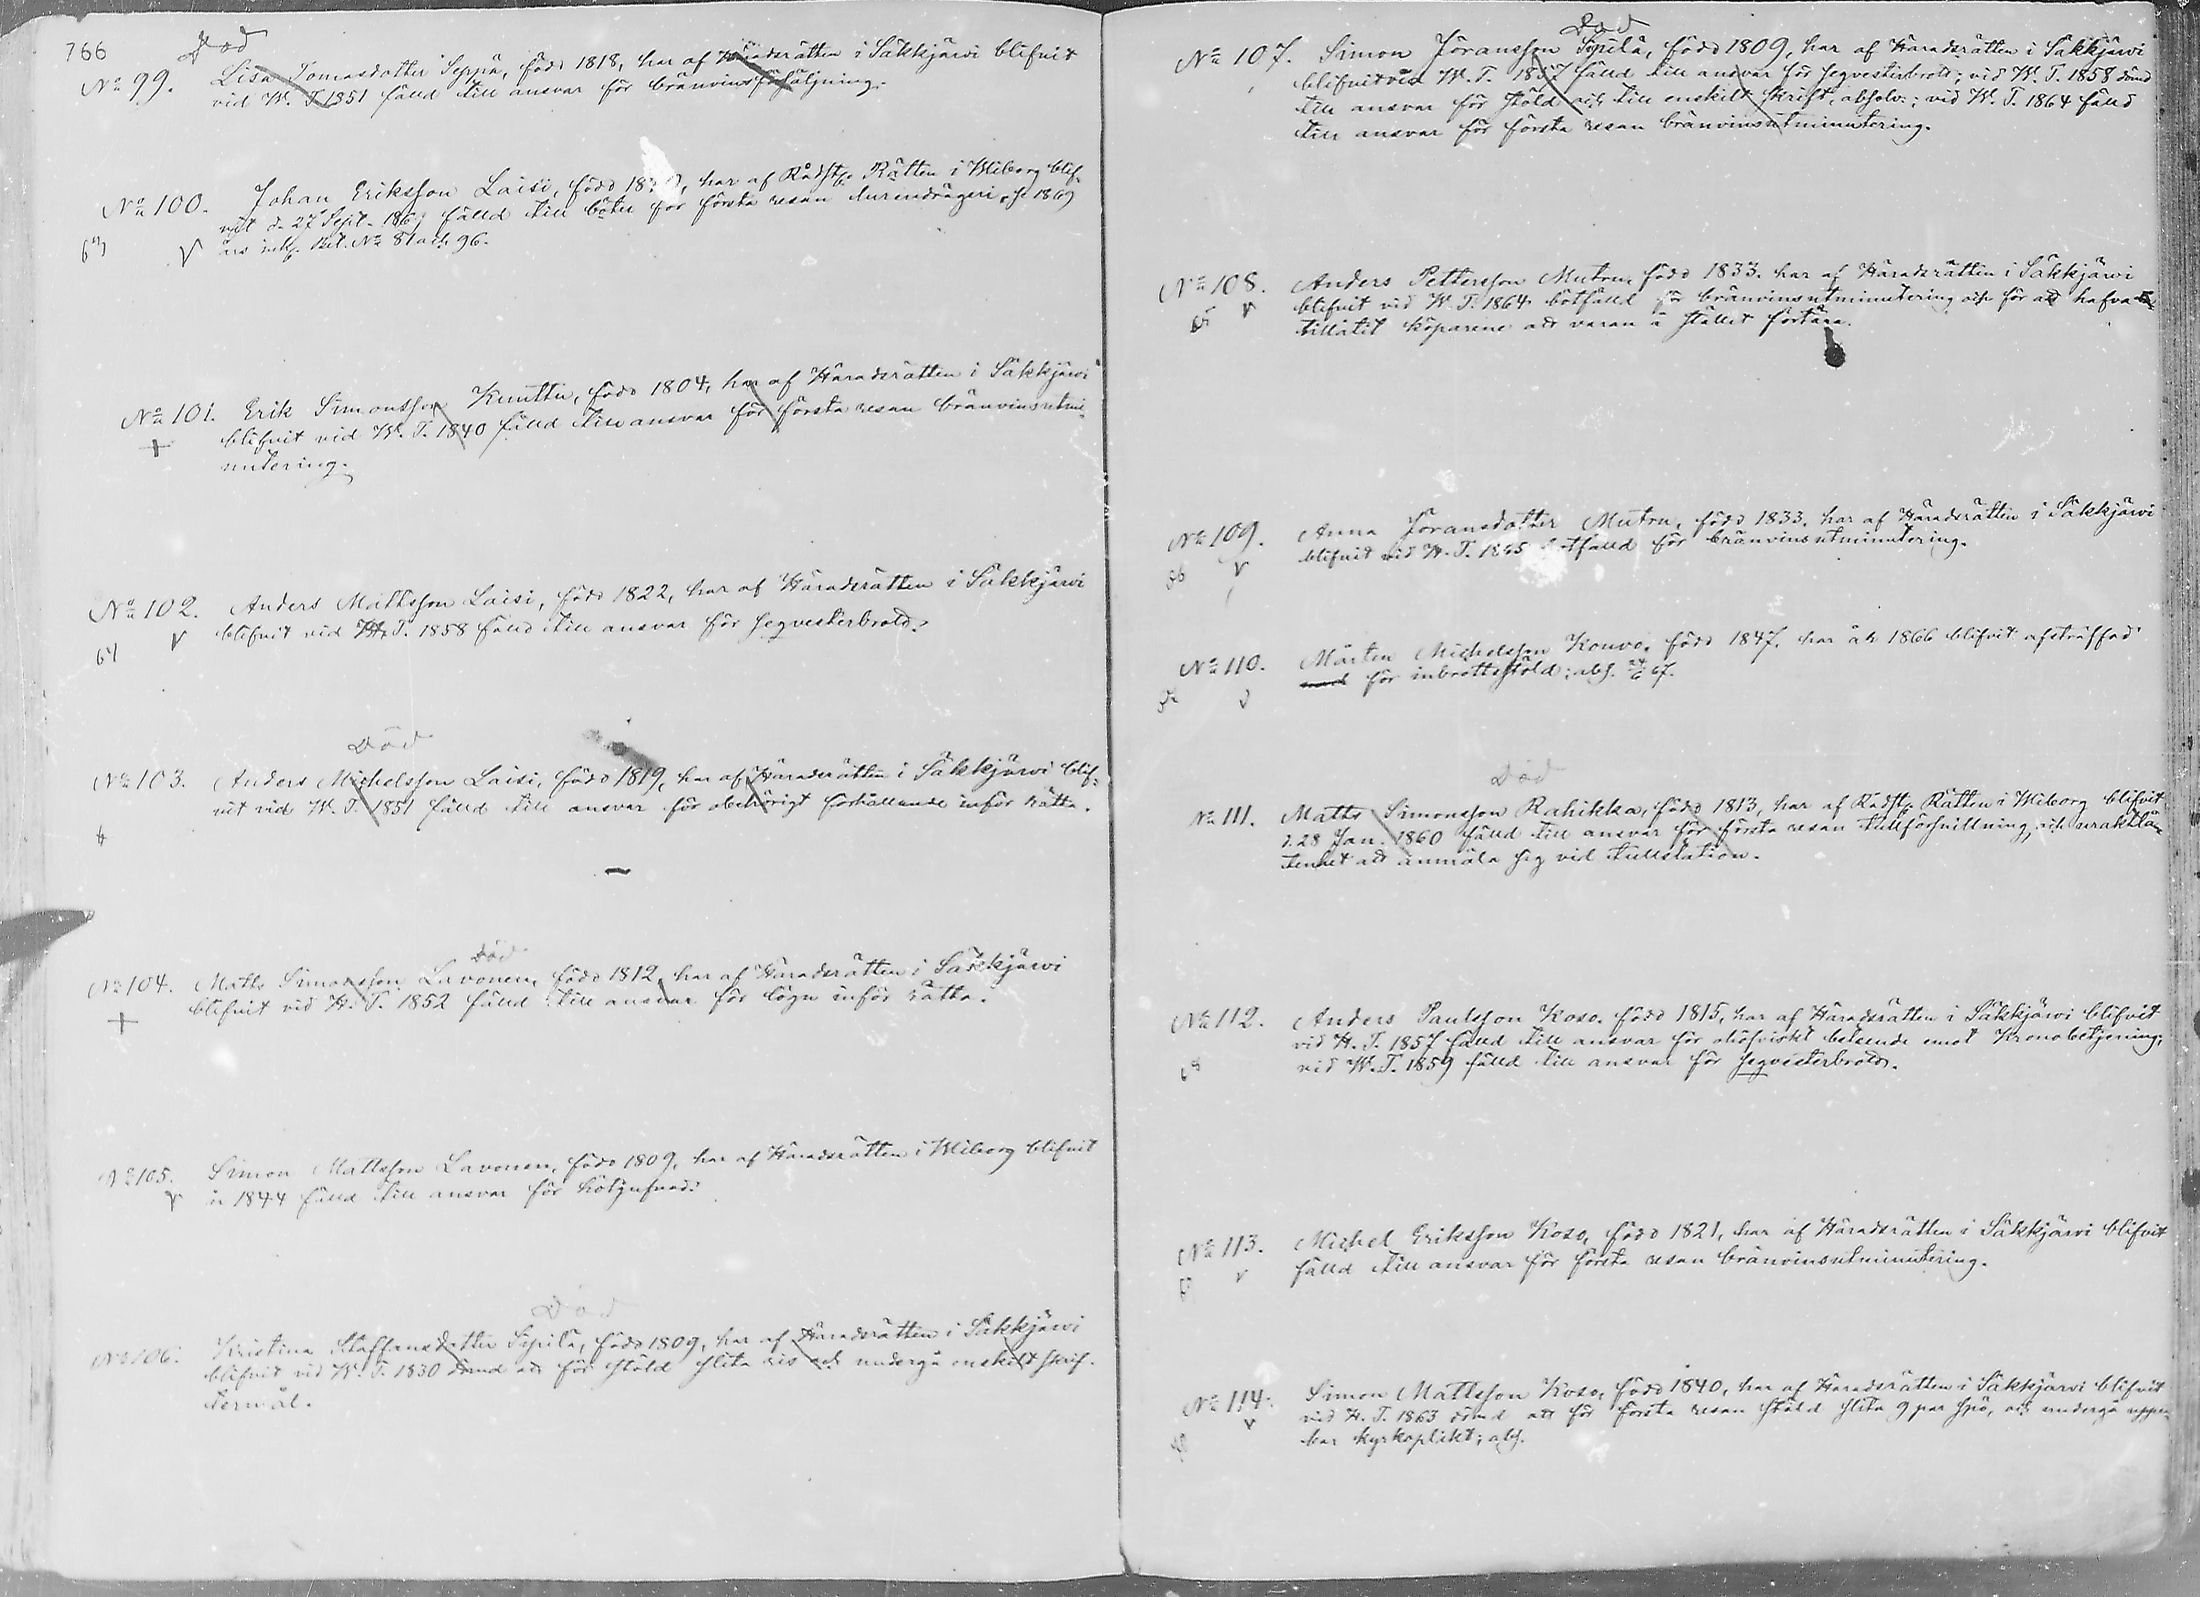 766
Död
No 99. Lisa Tomasdotter Seppä, född 1818, har af Häradsrätten i Säkkjärvi blifvit
vid W. T. 1851 fälld till ansvar för bränvinsförsäljning.
No 100. Johan Eriksson Laisi, född 18, har af Rådst. Rätten i Wiborg blif-
vit d. 27 Sept. 186 fälld till böter för första resan lurendrägeri, se 1869
års ink. Bil. No 81 och 96.
V
No 101. Erik Simonsson Knuttu, född 1804, har af Häradsrätten i Säkkjärvi
+ blifvit vid W. T. 1840 fälld till ansvar för första resan bränvinsutmi-
nutering.
No 102. Anders Mattsson Laisi, född 1822, har af Häradsrätten i Säkkjärvi
64 V blifvit vid W. T. 1858 fälld till ansvar för seqvesterbrott.
Död
No 103. Anders Michelsson Laisi, född 1819, har af Häradsrätten i Säkkjärvi blif-
vit vid W. T. 1851 fälld till ansvar för obehörigt förhållande inför Rätta.
Död
No 104. Matts Simonsson Lavonen, född 1812, har af Häradsrätten i Säkkjärvi
+ blifvit vid H. T. 1852 fälld till ansvar för lögn inför rätta.
No 105. Simon Mattsson Lavonen, född 1809, har af Häradsrätten i Wiborg blifvit
V år 1844 fälld till ansvar för
Död
No 106. Kristina Staffansdotter Sipilä, född 1809, har af Häradsrätten i Säkkjärvi
blifvit vid W. T. 1830 dömd att för stöld slita ris och undergå enskilt skrif-
termål.
Död
No 107. Simon Jöransson Sipilä, född 1809, har af Häradsrätten i Säkkjärvi
blifvit vid W. T. 1857 fälld till ansvar för seqvesterbrott; vid W. T. 1858 dömd
till ansvar för stöld och till enskilt skrift, absolv.; vid W. T. 1864 fälld
till ansvar för första resan bränvinsutminutering.
No 108. Anders Pettersson Mutru, född 1833, har af Häradsrätten i Säkkjärvi
65 V blifvit vid W. T. 1864 bötfälld för bränvinsutminutering och för att hafva
tillåtit köparene att varan å stället förtära.
No 109. Anna Jöransdotter Mutru, född 1833, har af Häradsrätten i Säkkjärvi
V blifvit vid H. T. 1865 bötfälld för bränvinsutminutering.
No 110. Mårten Michelsson Konvo, född 1847, har år 1866 blifvit afstraffad
för inbrottsstöld; abs. 24/6 67.
Död
No 111. Matts Simonsson Rahikka, född 1813, har af Rådst. Rätten i Wiborg blifvit
d. 28 Jan. 1860 fälld till ansvar för första resan tullförsnillning och uraktlå-
tenhet att anmäla sig vid tullstation.
No 112. Anders Paulsson Koso, född 1815, har af Häradsrätten i Säkkjärvi blifvit
vid H. T. 1857 fälld till ansvar för ohöfviskt beteende emot Kronobetjening;
vid W. T. 1859 fälld till ansvar för seqvesterbrott.
No 113. Michel Eriksson Koso, född 1821, har af Häradsrätten i Säkkjärvi blifvit
V fälld till ansvar för första resan bränvinsutminutering.
No 114. Simon Mattsson Koso, född 1840, har af Häradsrätten i Säkkjärvi blifvit
V vid H. T. 1863 dömd att för första resan stöld slita 9 par spö, och undergå uppen-
bar kyrkoplikt; abs.